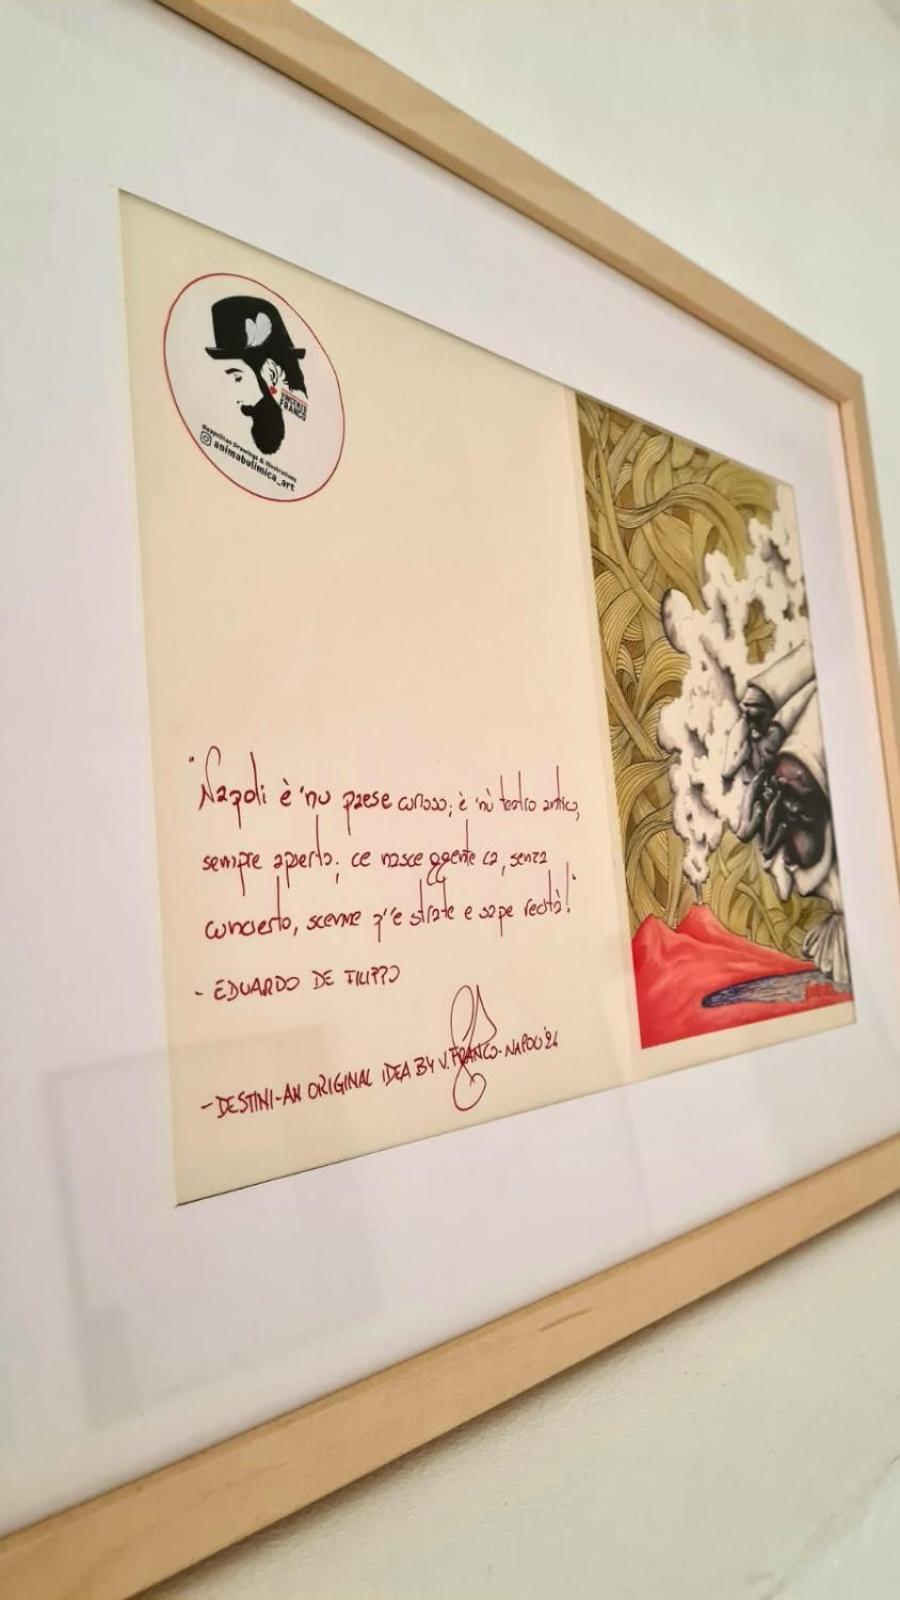 VINCENZO
FRANCO
Neapolitan Drawings & Illustrations
animabulimica_art
"Napoli è 'nu paese curioso; è 'nù teatro antico,
sempre apierto; ce nasce ggente ca, senza
cuncierto, scenne p' 'e strate e sape recità!"
- EDUARDO DE FILIPPO
- DESTINI - AN ORIGINAL IDEA BY V. FRANCO - NAPOLI '24